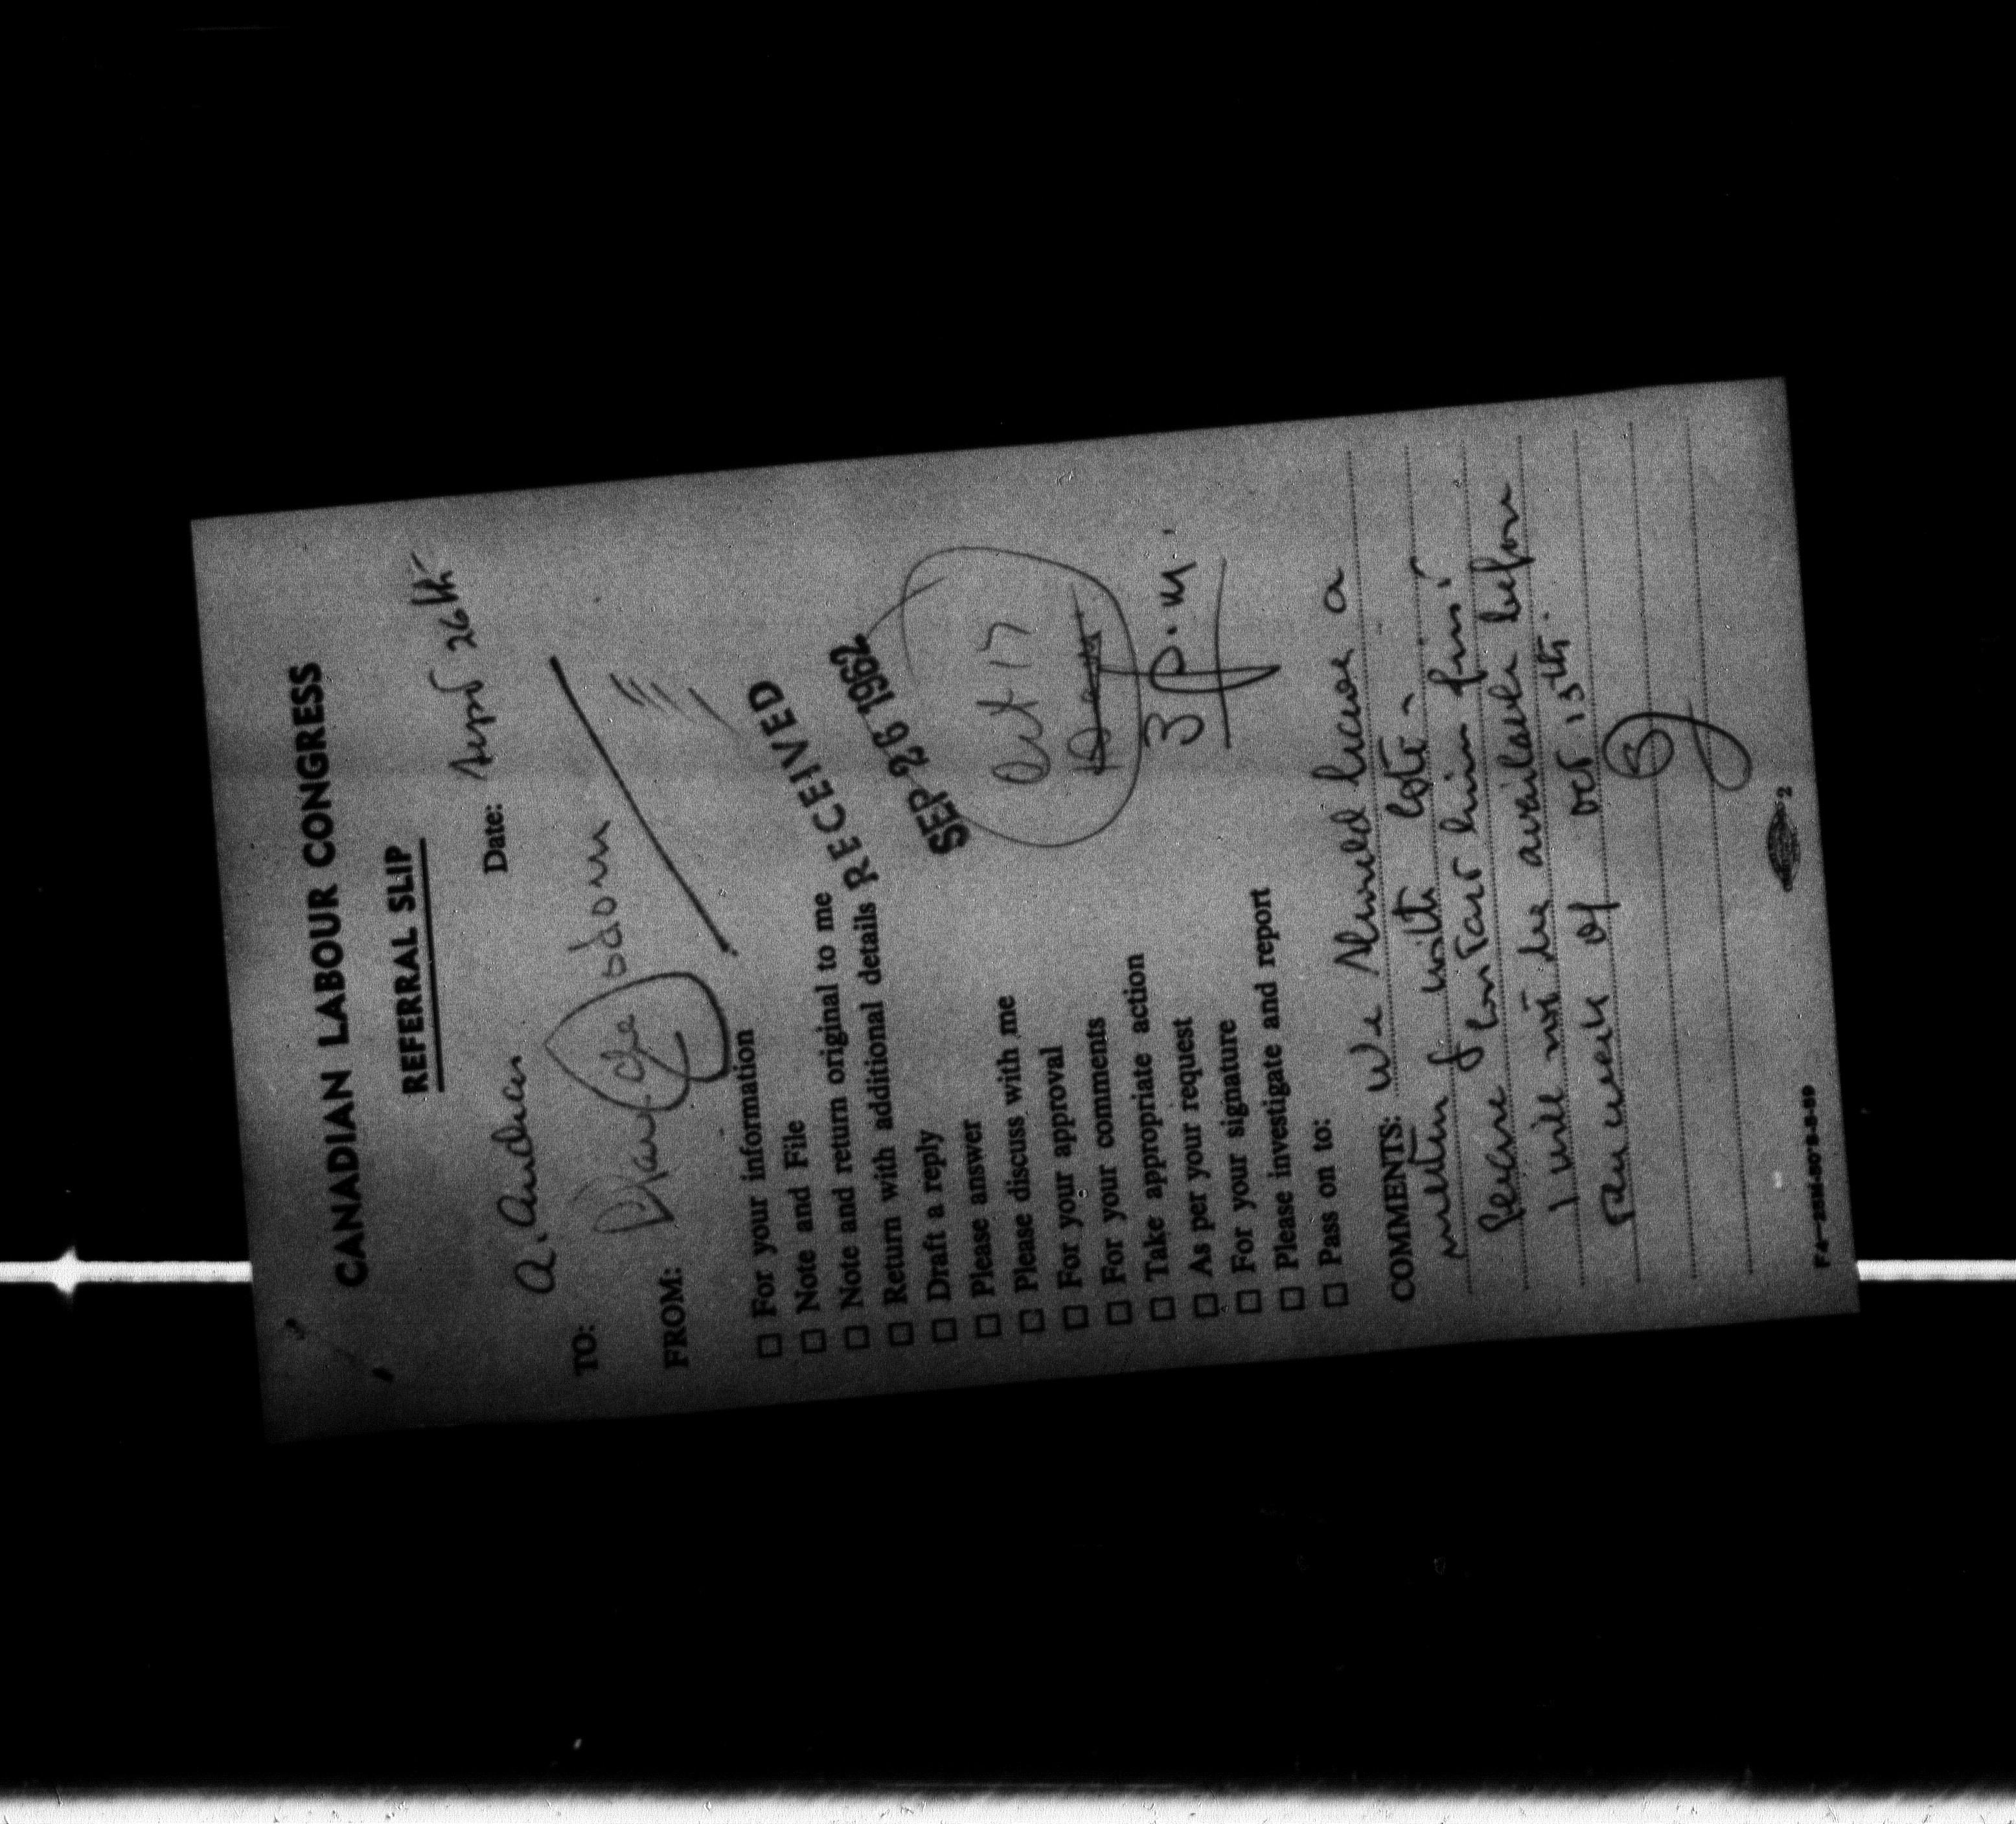 CANADIAN LABOUR CONGRESS
REFERRAL SLIP
Date: Sept 26th
TO: A. Andras
FROM:
☐ For your information
☐ Note and File
☐ Note and return original to me
☐ Return with additional details
☐ Draft a reply
☐ Please answer
☐ Please discuss with me
☐ For your approval
☐ For your comments
☐ Take appropriate action
☐ As per your request
☐ For your signature
☐ Please investigate and report
☐ Pass on to:
RECEIVED
SEP 26 1962
Oct 17
3 p.m.
COMMENTS: We should have a
meeting with Coté -
Please contact him first.
I will not be available before
the week of Oct 15th.
2